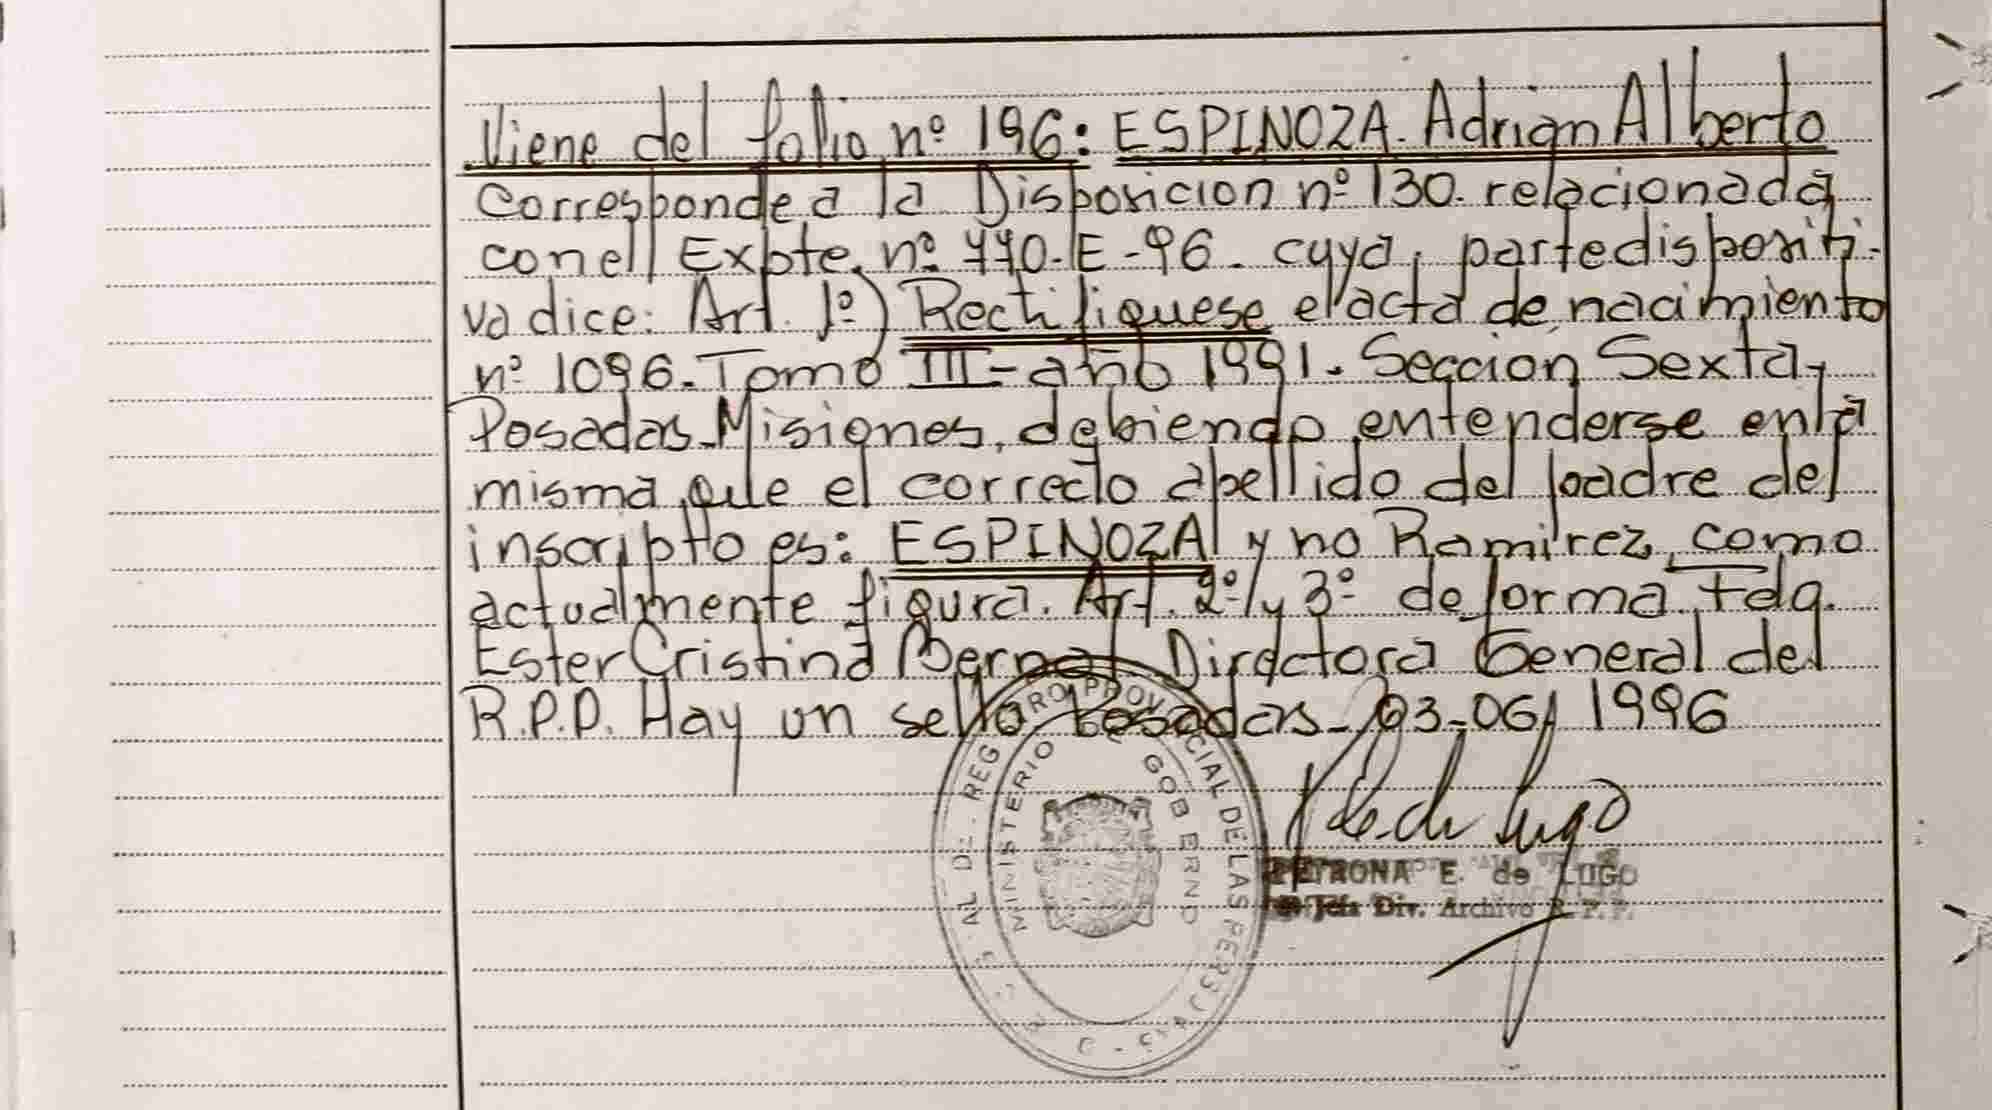 Viene del folio nº 196: ESPINOZA. Adrian Alberto
Corresponde a la Disposicion nº 130. relacionada
con el Expte. nº 440-E-96. cuya, parte dispositi-
va dice: Art. 1º) Rectifiquese el acta de nacimiento
nº 1096. Tomo III - año 1991. Seccion Sexta,
Posadas. Misiones, debiendo entenderse en la
misma que el correcto apellido del padre del
inscripto es: ESPINOZA y no Ramirez, como
actualmente figura. Art. 2º y 3º de forma. Fdo.
Ester Cristina Bernal Directora General del
R.P.P. Hay un sello Posadas - 03-06/ 1996
REGISTRO PROVINCIAL DE LAS PERSONAS
MINISTERIO GOBIERNO
de Lugo
PETRONA E. de LUGO
Jefa Div. Archivo R.P.P.